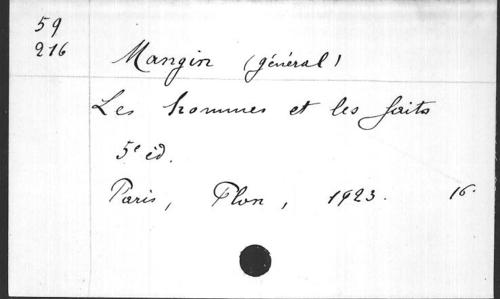 59
216
Mangin (général)
Les hommes et les faits
5e éd.
Paris, Plon, 1923. 16.